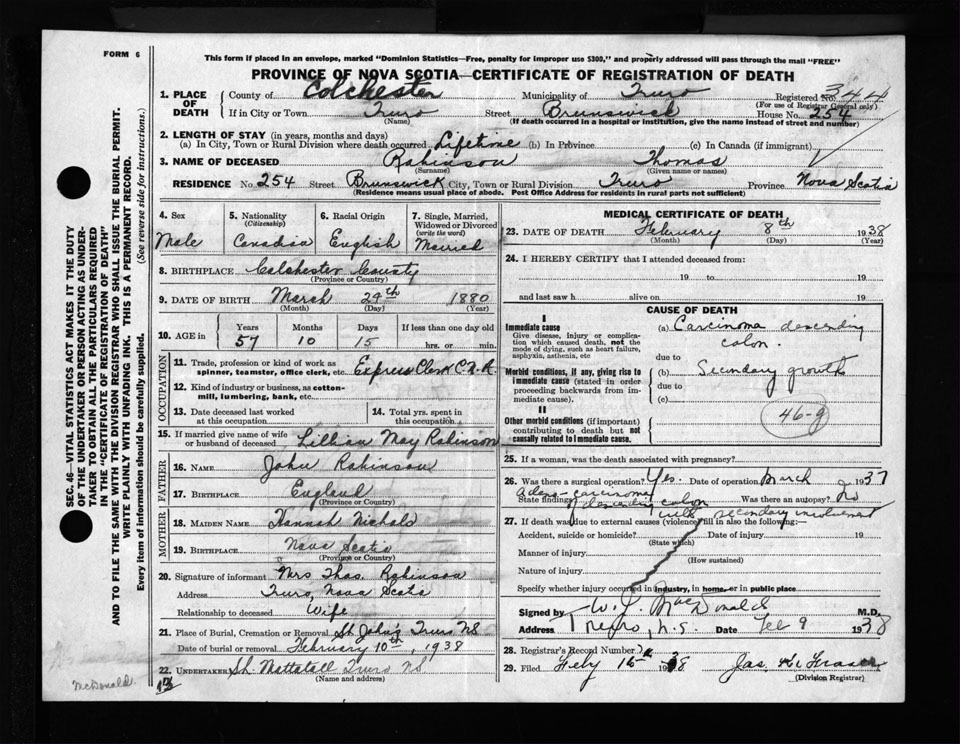 FORM 6
This form if placed in an envelope, marked "Dominion Statistics—Free, penalty for improper use $300," and properly addressed will pass through the mail "FREE"
PROVINCE OF NOVA SCOTIA—CERTIFICATE OF REGISTRATION OF DEATH
344
1. PLACE OF DEATH County of Colchester Municipality of Truro Registered No.
(For use of Registrar General only)
If in City or Town Truro Street Brunswick House No. 254
(Name) (If death occurred in a hospital or institution, give the name instead of street and number)
2. LENGTH OF STAY (in years, months and days)
(a) In City, Town or Rural Division where death occurred Lifetime (b) In Province (c) In Canada (if immigrant)
3. NAME OF DECEASED Robinson Thomas
(Surname) (Given name or names)
RESIDENCE No. 254 Street Brunswick City, Town or Rural Division Truro Province Nova Scotia
(Residence means usual place of abode. Post Office Address for residents in rural parts not sufficient)
4. Sex
Male
5. Nationality
(Citizenship)
Canadian
6. Racial Origin
English
7. Single, Married, Widowed or Divorced
(write the word)
Married
8. BIRTHPLACE Colchester County
(Province or Country)
9. DATE OF BIRTH March 24th 1880
(Month) (Day) (Year)
10. AGE in Years Months Days If less than one day old
57 10 15 hrs. or min.
OCCUPATION
11. Trade, profession or kind of work as
spinner, teamster, office clerk, etc. Express Clerk C.N.R.
12. Kind of industry or business, as cotton-
mill, lumbering, bank, etc.
13. Date deceased last worked
at this occupation
14. Total yrs. spent in
this occupation
15. If married give name of wife
or husband of deceased Lillian May Robinson
FATHER
16. NAME John Robinson
17. BIRTHPLACE England
(Province or Country)
MOTHER
18. MAIDEN NAME Hannah Nichols
19. BIRTHPLACE Nova Scotia
(Province or Country)
20. Signature of informant Mrs Thos. Robinson
Address Truro, Nova Scotia
Relationship to deceased Wife
21. Place of Burial, Cremation or Removal St John's Truro NS
Date of burial or removal February 10th, 1938
22. UNDERTAKER Mattatall Truro NS
(Name and address)
MEDICAL CERTIFICATE OF DEATH
23. DATE OF DEATH February 8th 1938
(Month) (Day) (Year)
24. I HEREBY CERTIFY that I attended deceased from:
19 to 19
and last saw h alive on 19
CAUSE OF DEATH
I
Immediate cause
Give disease, injury or complica-
tion which caused death, not the
mode of dying, such as heart failure,
asphyxia, asthenia, etc
(a) Carcinoma descending
colon.
due to
Morbid conditions, if any, giving rise to
immediate cause (stated in order
proceeding backwards from im-
mediate cause).
(b) Secondary growths
due to
(c)
II
Other morbid conditions (if important)
contributing to death but not
causally related to immediate cause.
46-g
25. If a woman, was the death associated with pregnancy?
26. Was there a surgical operation? Yes. Date of operation March 1937
State findings Adeno-carcinoma of descending colon Was there an autopsy? No
with secondary involvement
27. If death was due to external causes (violence) fill in also the following:—
Accident, suicide or homicide? Date of injury 19
(State which)
Manner of injury
(How sustained)
Nature of injury
Specify whether injury occurred in industry, in home, or in public place
Signed by MacDonald M.D.
Address Truro, N.S. Date Feb 9 1938
28. Registrar's Record Number
29. Filed Feby 15 1938 Jas. Fraser
(Division Registrar)
SEC. 46—VITAL STATISTICS ACT MAKES IT THE DUTY
OF THE UNDERTAKER OR PERSON ACTING AS UNDER-
TAKER TO OBTAIN ALL THE PARTICULARS REQUIRED
IN THE "CERTIFICATE OF REGISTRATION OF DEATH"
AND TO FILE THE SAME WITH THE DIVISION REGISTRAR WHO SHALL ISSUE THE BURIAL PERMIT.
WRITE PLAINLY WITH UNFADING INK. THIS IS A PERMANENT RECORD.
Every item of information should be carefully supplied. (See reverse side for instructions.)
McDonald.